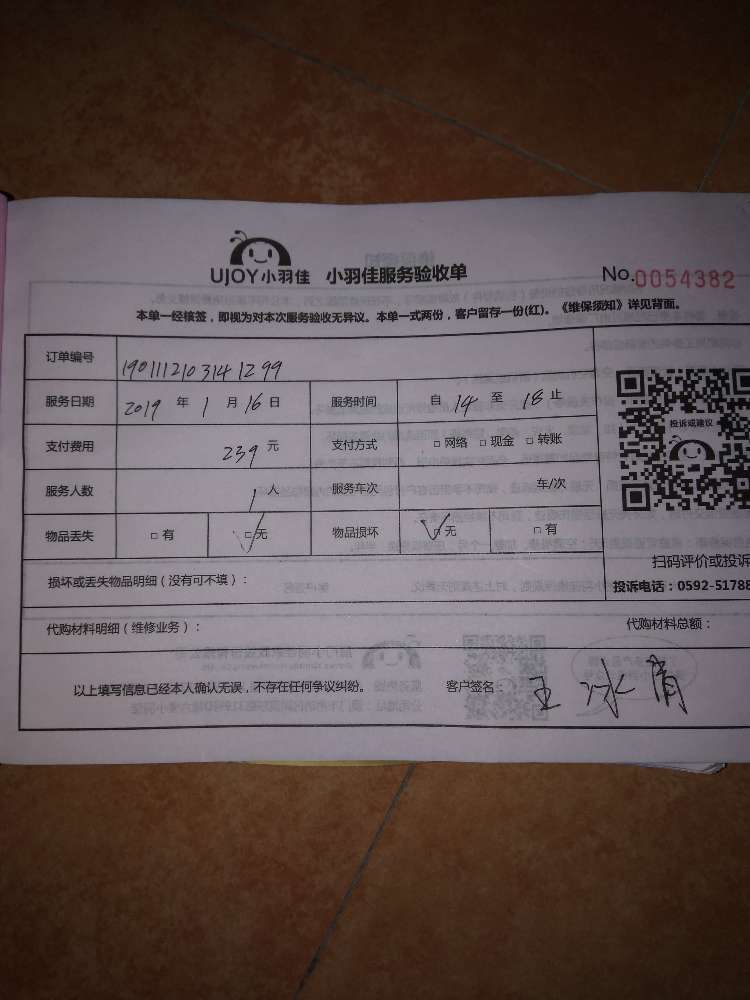 UJOY小羽佳 小羽佳服务验收单 No.0054382
本单一经核签，即视为对本次服务验收无异议。本单一式两份，客户留存一份(红)。《维保须知》详见背面。
订单编号 190111210314 1299
服务日期 2019 年 1 月 16 日 服务时间 自 14 至 18 止
支付费用 239 元 支付方式 □网络 □现金 □转账
服务人数 1 人 服务车次 车/次
物品丢失 □有 □无 物品损坏 □无 □有
投诉或建议
扫码评价或投诉
损坏或丢失物品明细（没有可不填）： 投诉电话：0592-51788
代购材料明细（维修业务）： 代购材料总额：
以上填写信息已经本人确认无误，不存在任何争议纠纷。 客户签名： 王冰清